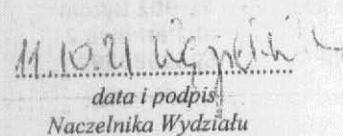 11.10.21
data i podpis
Naczelnika Wydziału